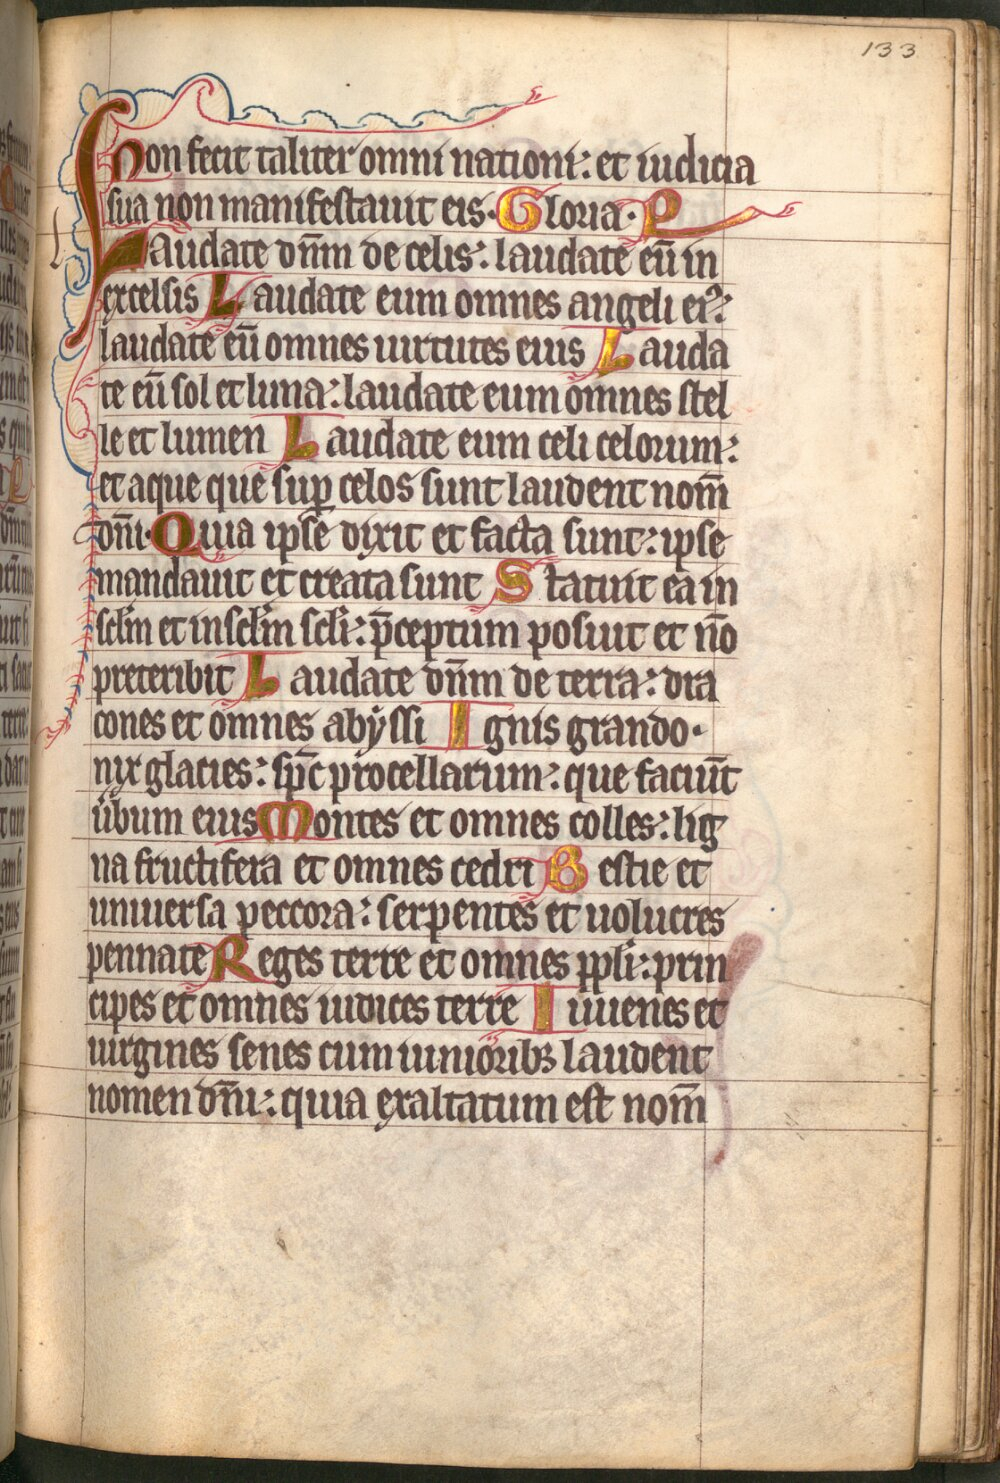 133
Non fecit taliter omni nationi: et iudicia
sua non manifestauit eis. Gloria. P
Laudate dn̄m de celis: laudate eū in
excelsis Laudate eum omnes angeli eiꝰ:
laudate eū omnes uirtutes eius Lauda
te eū sol et luna: laudate eum omnes stel
le et lumen Laudate eum celi celorum:
et aque que suꝑ celos sunt laudent nom̄
dn̄i. Quia ipse dixit et facta sunt: ipse
mandauit et creata sunt Statuit ea in
sclm̄ et in sclm̄ scli: p̄ceptum posuit et nō
preteribit Laudate dn̄m de terra: dra
cones et omnes abyssi Ignis grando.
nix glacies: sp̄c procellarum: que faciūt
u̍bum eius Montes et omnes colles: lig
na fructifera et omnes cedri Bestie et
uniuersa peccora: serpentes et uolucres
pennate Reges terre et omnes ppl̄i: prin
cipes et omnes iudices terre Iuuenes et
uirgines senes cum iunioribꝫ laudent
nomen dn̄i: quia exaltatum est nom̄